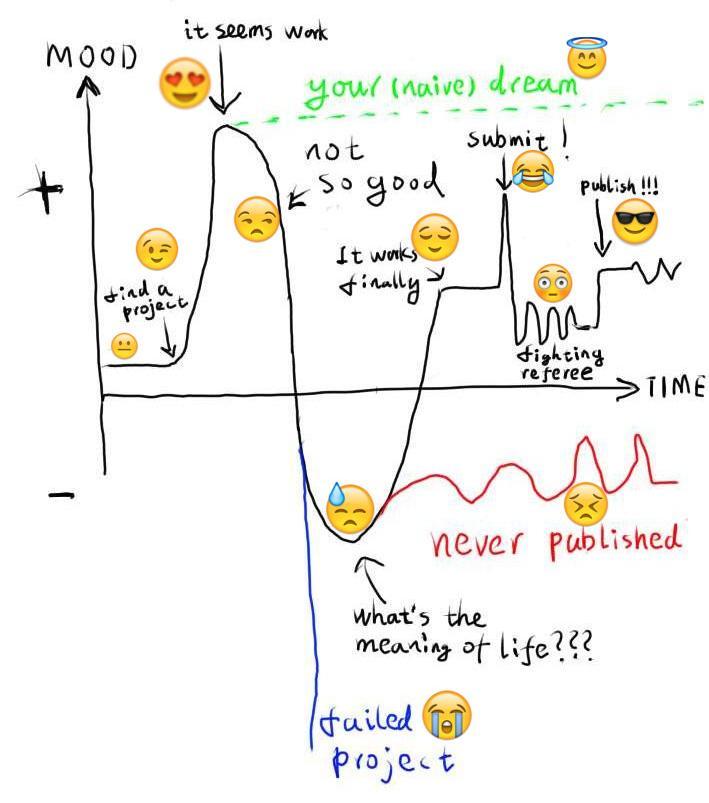 it seems work
MOOD
your (naive) dream
+
not
so good
submit !
publish !!!
It works
finally
find a
project
fighting
referee
TIME
-
never published
what's the
meaning of life???
failed
project